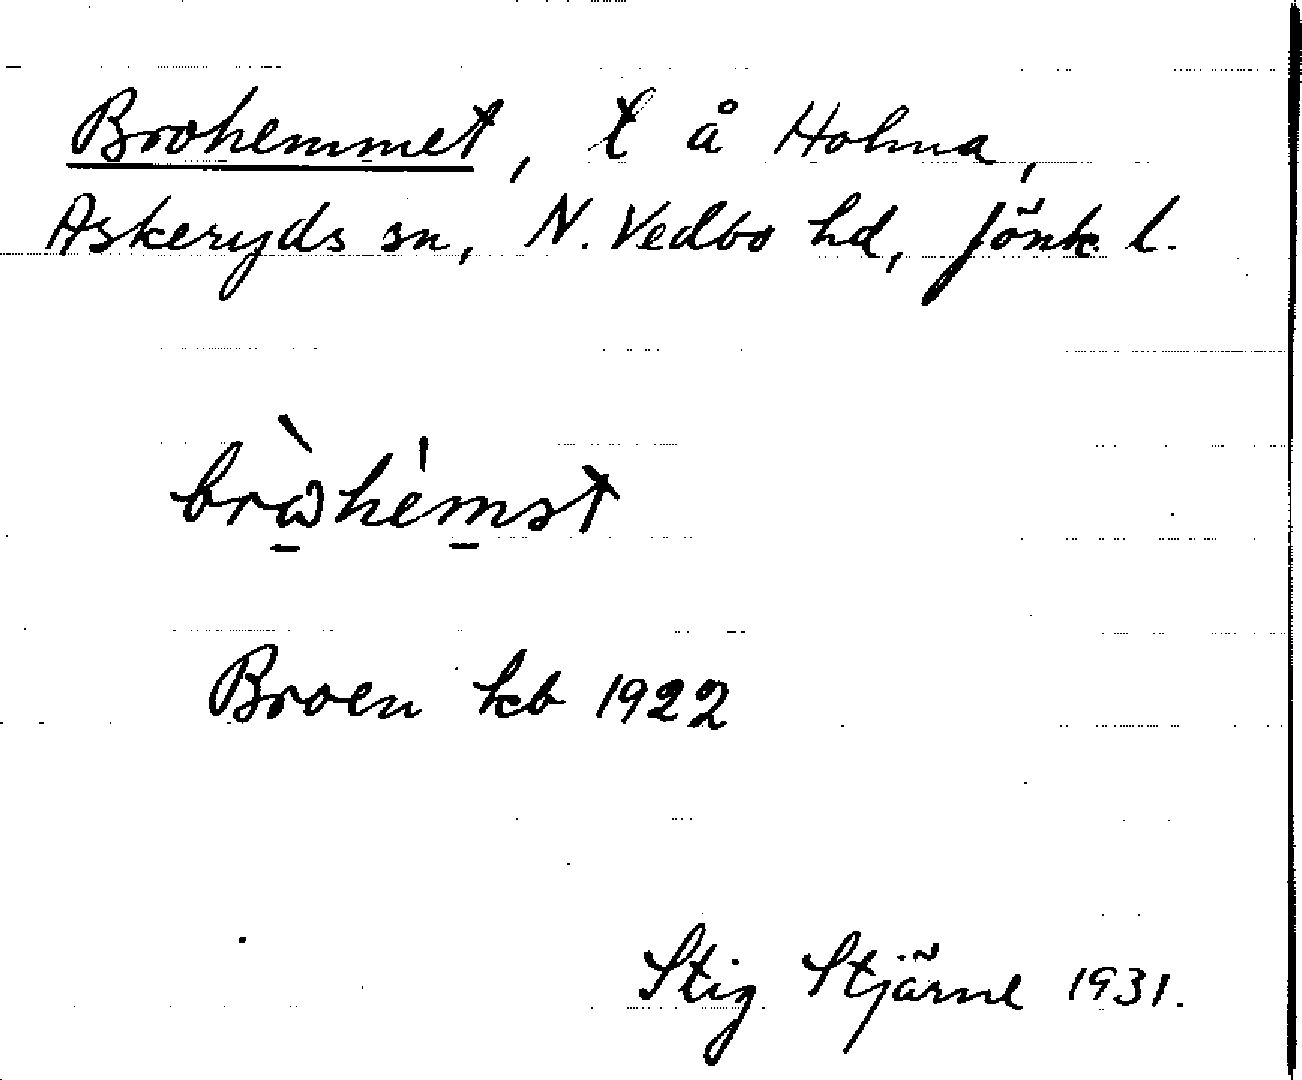 Brohemmet, t å Holma,
Askeryds sn, N. Vedbo hd, Jönk. l.
Broen kb 1922
Stig Stjärne 1931.